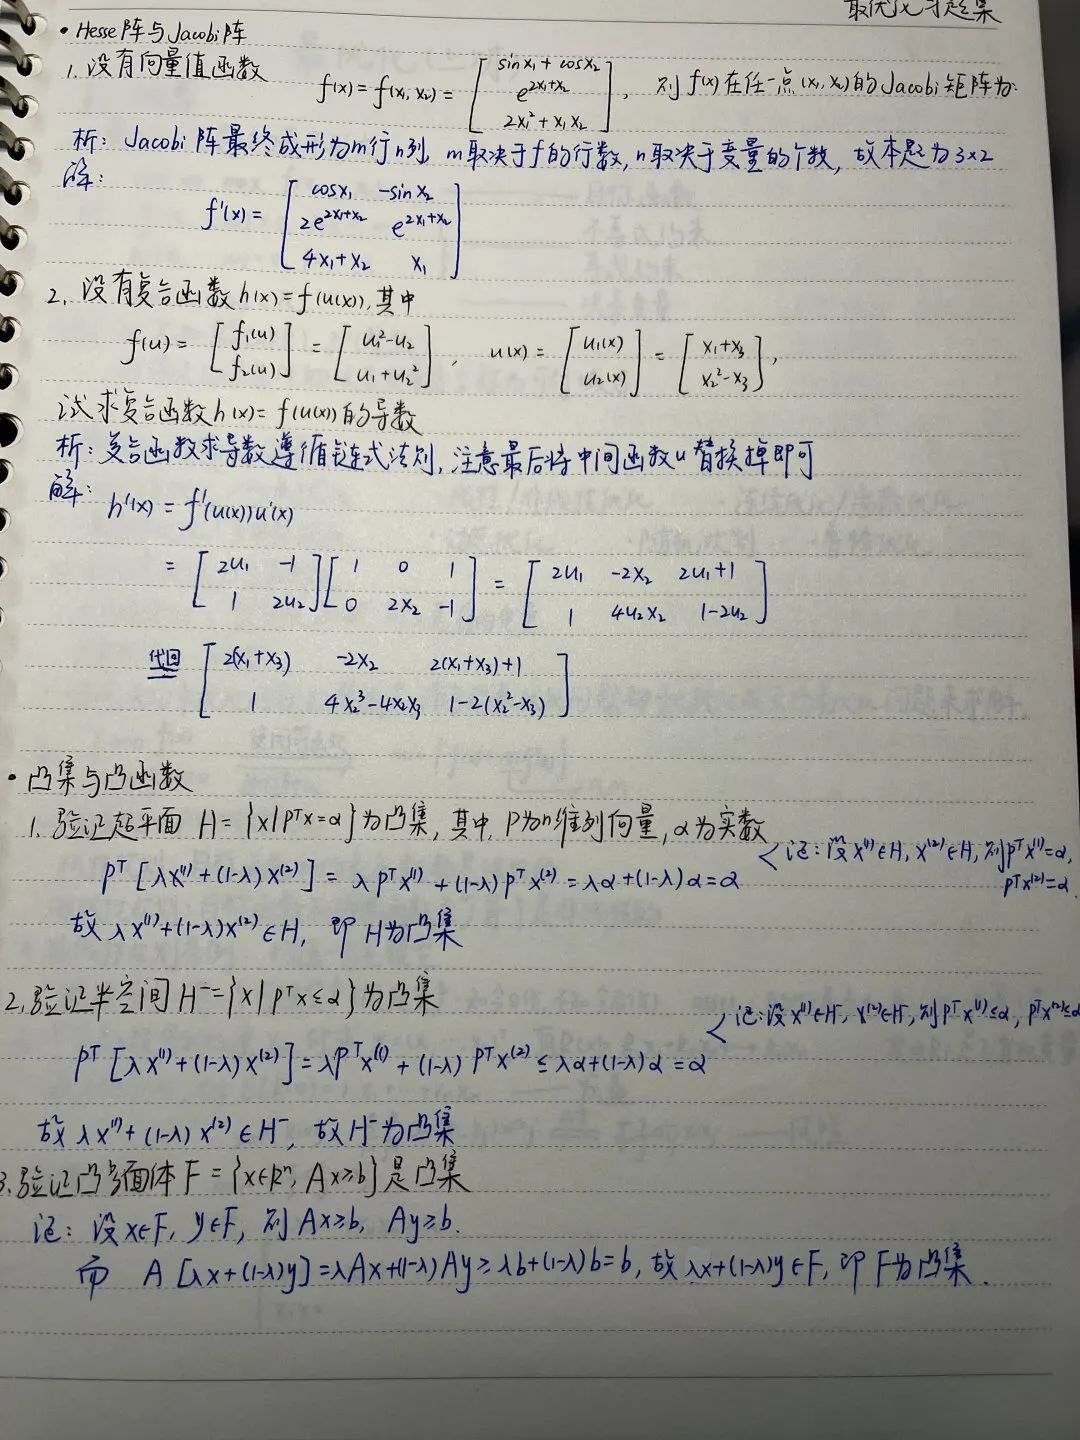 最优化习题集
• Hesse阵与Jacobi阵
1. 设有向量值函数 f(x) = f(x₁, x₂) = [ sinx₁ + cosx₂ ; e^(2x₁+x₂) ; 2x₁² + x₁x₂ ], 则 f(x) 在任一点(x₁, x₂)的Jacobi矩阵为:
析: Jacobi阵最终成形为m行n列, m取决于f的行数, n取决于变量的个数, 故本题为3×2
解:
f'(x) = [ cosx₁ -sinx₂ ; 2e^(2x₁+x₂) e^(2x₁+x₂) ; 4x₁+x₂ x₁ ]
2. 设有复合函数 h(x) = f(u(x)), 其中
f(u) = [ f₁(u) ; f₂(u) ] = [ u₁²-u₂ ; u₁+u₂² ], u(x) = [ u₁(x) ; u₂(x) ] = [ x₁+x₃ ; x₂²-x₃ ],
试求复合函数 h(x) = f(u(x)) 的导数
析: 复合函数求导数遵循链式法则, 注意最后将中间函数u替换掉即可
解: h'(x) = f'(u(x))u'(x)
= [ 2u₁ -1 ; 1 2u₂ ] [ 1 0 1 ; 0 2x₂ -1 ] = [ 2u₁ -2x₂ 2u₁+1 ; 1 4u₂x₂ 1-2u₂ ]
代回 [ 2(x₁+x₃) -2x₂ 2(x₁+x₃)+1 ; 1 4x₂³-4x₂x₃ 1-2(x₂²-x₃) ]
• 凸集与凸函数
1. 验证超平面 H = {x | pᵀx = α} 为凸集, 其中, p为n维列向量, α为实数
证: 设 x⁽¹⁾∈H, x⁽²⁾∈H, 则 pᵀx⁽¹⁾=α,
pᵀx⁽²⁾=α
pᵀ[λx⁽¹⁾ + (1-λ)x⁽²⁾] = λpᵀx⁽¹⁾ + (1-λ)pᵀx⁽²⁾ = λα + (1-λ)α = α
故 λx⁽¹⁾ + (1-λ)x⁽²⁾ ∈ H, 即 H为凸集
2. 验证半空间 H⁻ = {x | pᵀx ≤ α} 为凸集
证: 设 x⁽¹⁾∈H⁻, x⁽²⁾∈H⁻, 则 pᵀx⁽¹⁾≤α, pᵀx⁽²⁾≤α
pᵀ[λx⁽¹⁾ + (1-λ)x⁽²⁾] = λpᵀx⁽¹⁾ + (1-λ)pᵀx⁽²⁾ ≤ λα + (1-λ)α = α
故 λx⁽¹⁾ + (1-λ)x⁽²⁾ ∈ H⁻, 故 H⁻为凸集
3. 验证凸多面体 F = {x∈Rⁿ, Ax≥b} 是凸集
证: 设 x∈F, y∈F, 则 Ax≥b, Ay≥b.
而 A[λx+(1-λ)y] = λAx+(1-λ)Ay ≥ λb+(1-λ)b = b, 故 λx+(1-λ)y∈F, 即 F为凸集.